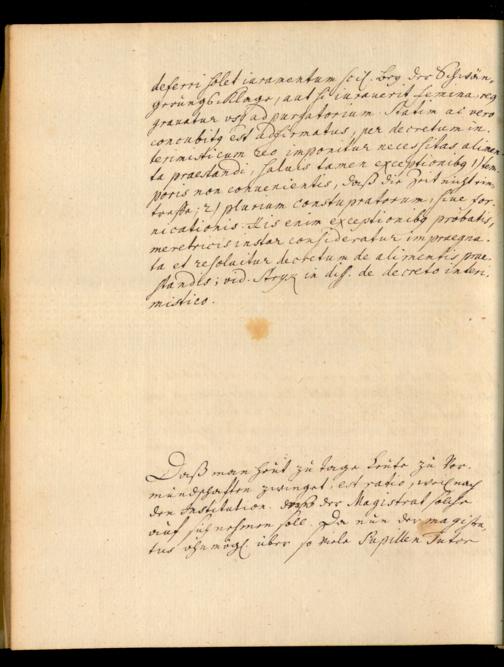 deferri solet iuramentum scil. bey der Schwän-
gerungs Klage, aut si iuraverit femina reg
gravatur usq ad purgatorium. Statim ac vero
concubitq est adfirmatus, per decretum in-
terimisticum reo imponitur necessitas alimen-
ta praestandi, salvis tamen exceptionibq 1) tem-
poris non convenientis, daß die Zeit nicht ein-
treffe; 2) plurium constupratorum, sive for-
nicationis. His enim exceptionibq probatis,
meretricis instar consideratur impraegna-
ta et resolvitur decretum de alimentis prae-
standis; vid. Stryk in diss. de decreto interi-
mistico.
Daß man heut zu tage Leute zu Vor-
mundschaften zwinget, est ratio, weil nach
den Institution. der Magistrat solche
auf sich nehmen soll. Da nun der magistra-
tus ohnmögl. über so viele Pupillen Tutor